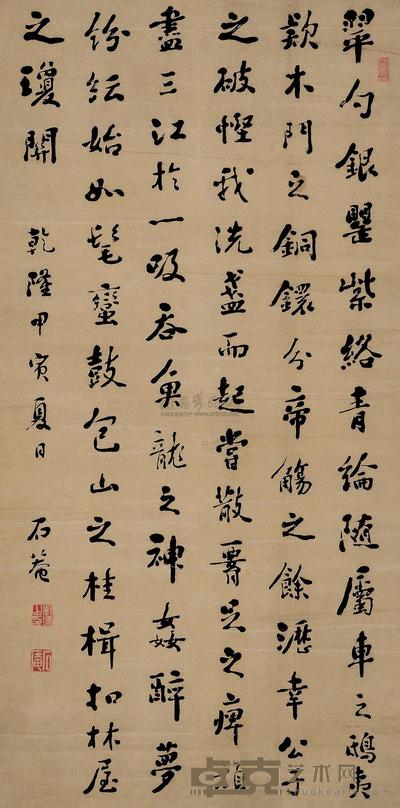 翠勺銀罌紫絡青綸隨屬車之鴟夷
款木門之銅鐶分帝觴之餘瀝幸公子
之破慳我洗盞而起嘗散腰足之痺頑
盡三江於一吸吞魚龍之神姦醉夢
紛紜始如髦蠻鼓包山之桂楫扣林屋
之瓊關 乾隆甲寅夏日 石菴
艺术网